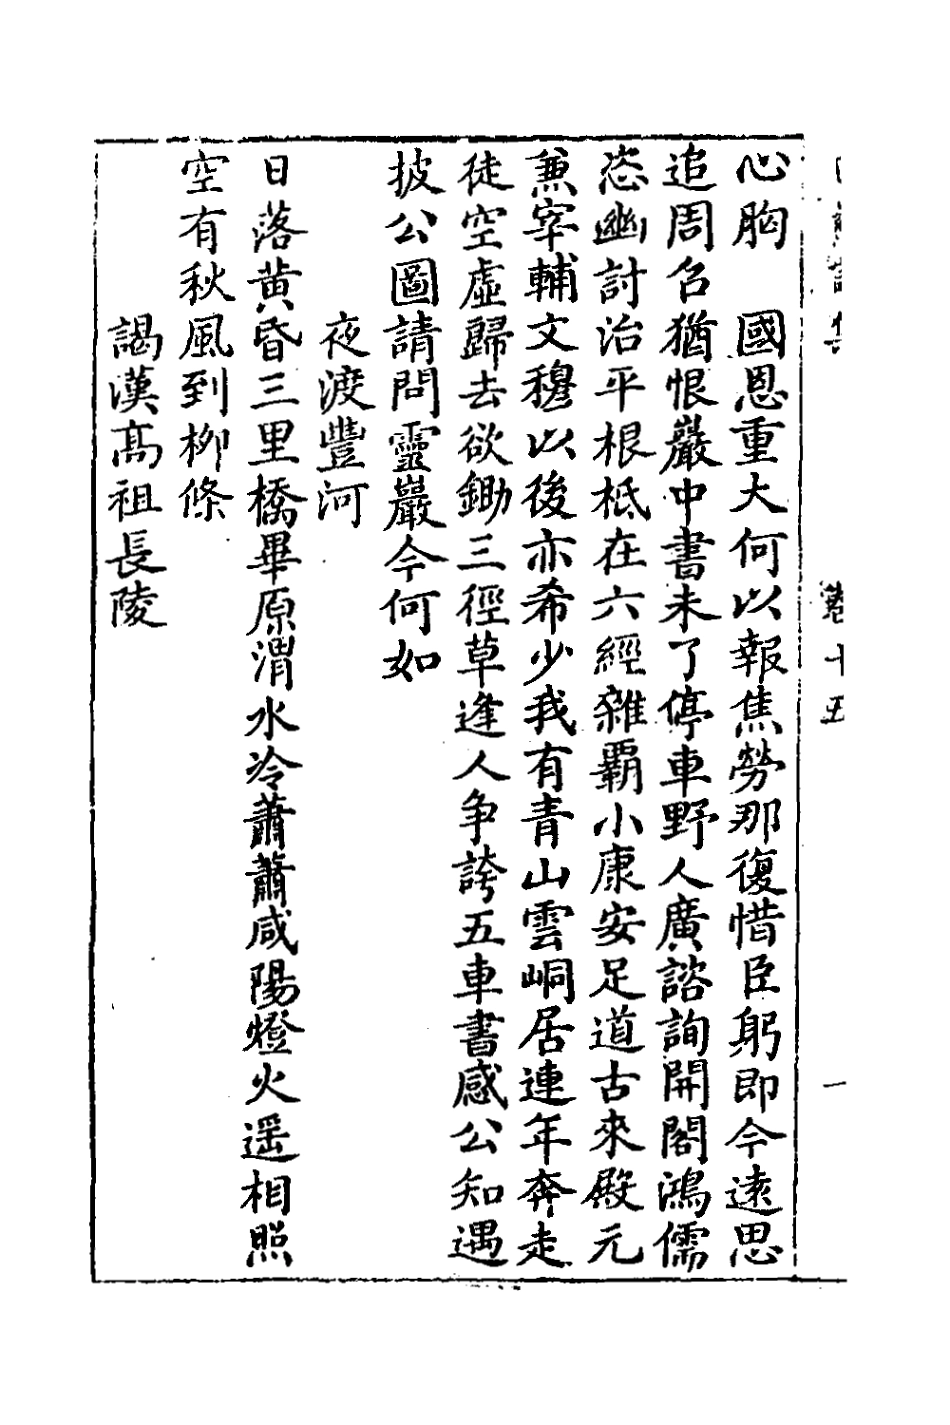 心胸　國恩重大何以報焦勞那復惜臣躬即今遠思
追周召猶恨嚴中書未了停車野人廣諮詢開閣鴻儒
恣幽討治平根柢在六經雜霸小康安足道古來殿元
兼宰輔文穆以後亦希少我有青山雲峒居連年奔走
徒空虛歸去欲鋤三徑草逢人争誇五車書感公知遇
披公圖請問靈巖今何如
夜渡豐河
日落黃昏三里橋畢原渭水冷蕭蕭咸陽燈火遥相照
空有秋風到柳條
謁漢髙祖長陵
卷十五
一